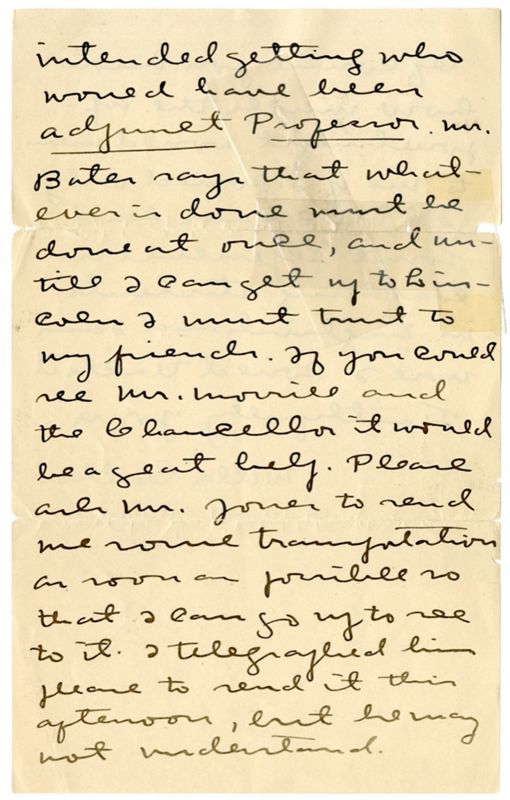 intended getting who
would have been
adjunct Professor. Mr.
Bates says that what-
ever is done must be
done at once, and un-
till I can get up to Lin-
coln I must trust to
my friends. If you could
see Mr. Morrill and
the Chancellor it would
be a great help. Please
ask Mr. Jones to send
me some transpotation
as soon as possible so
that I can go up to see
to it. I telegraphed him
please to send it this
afternoon, but he may
not understand.